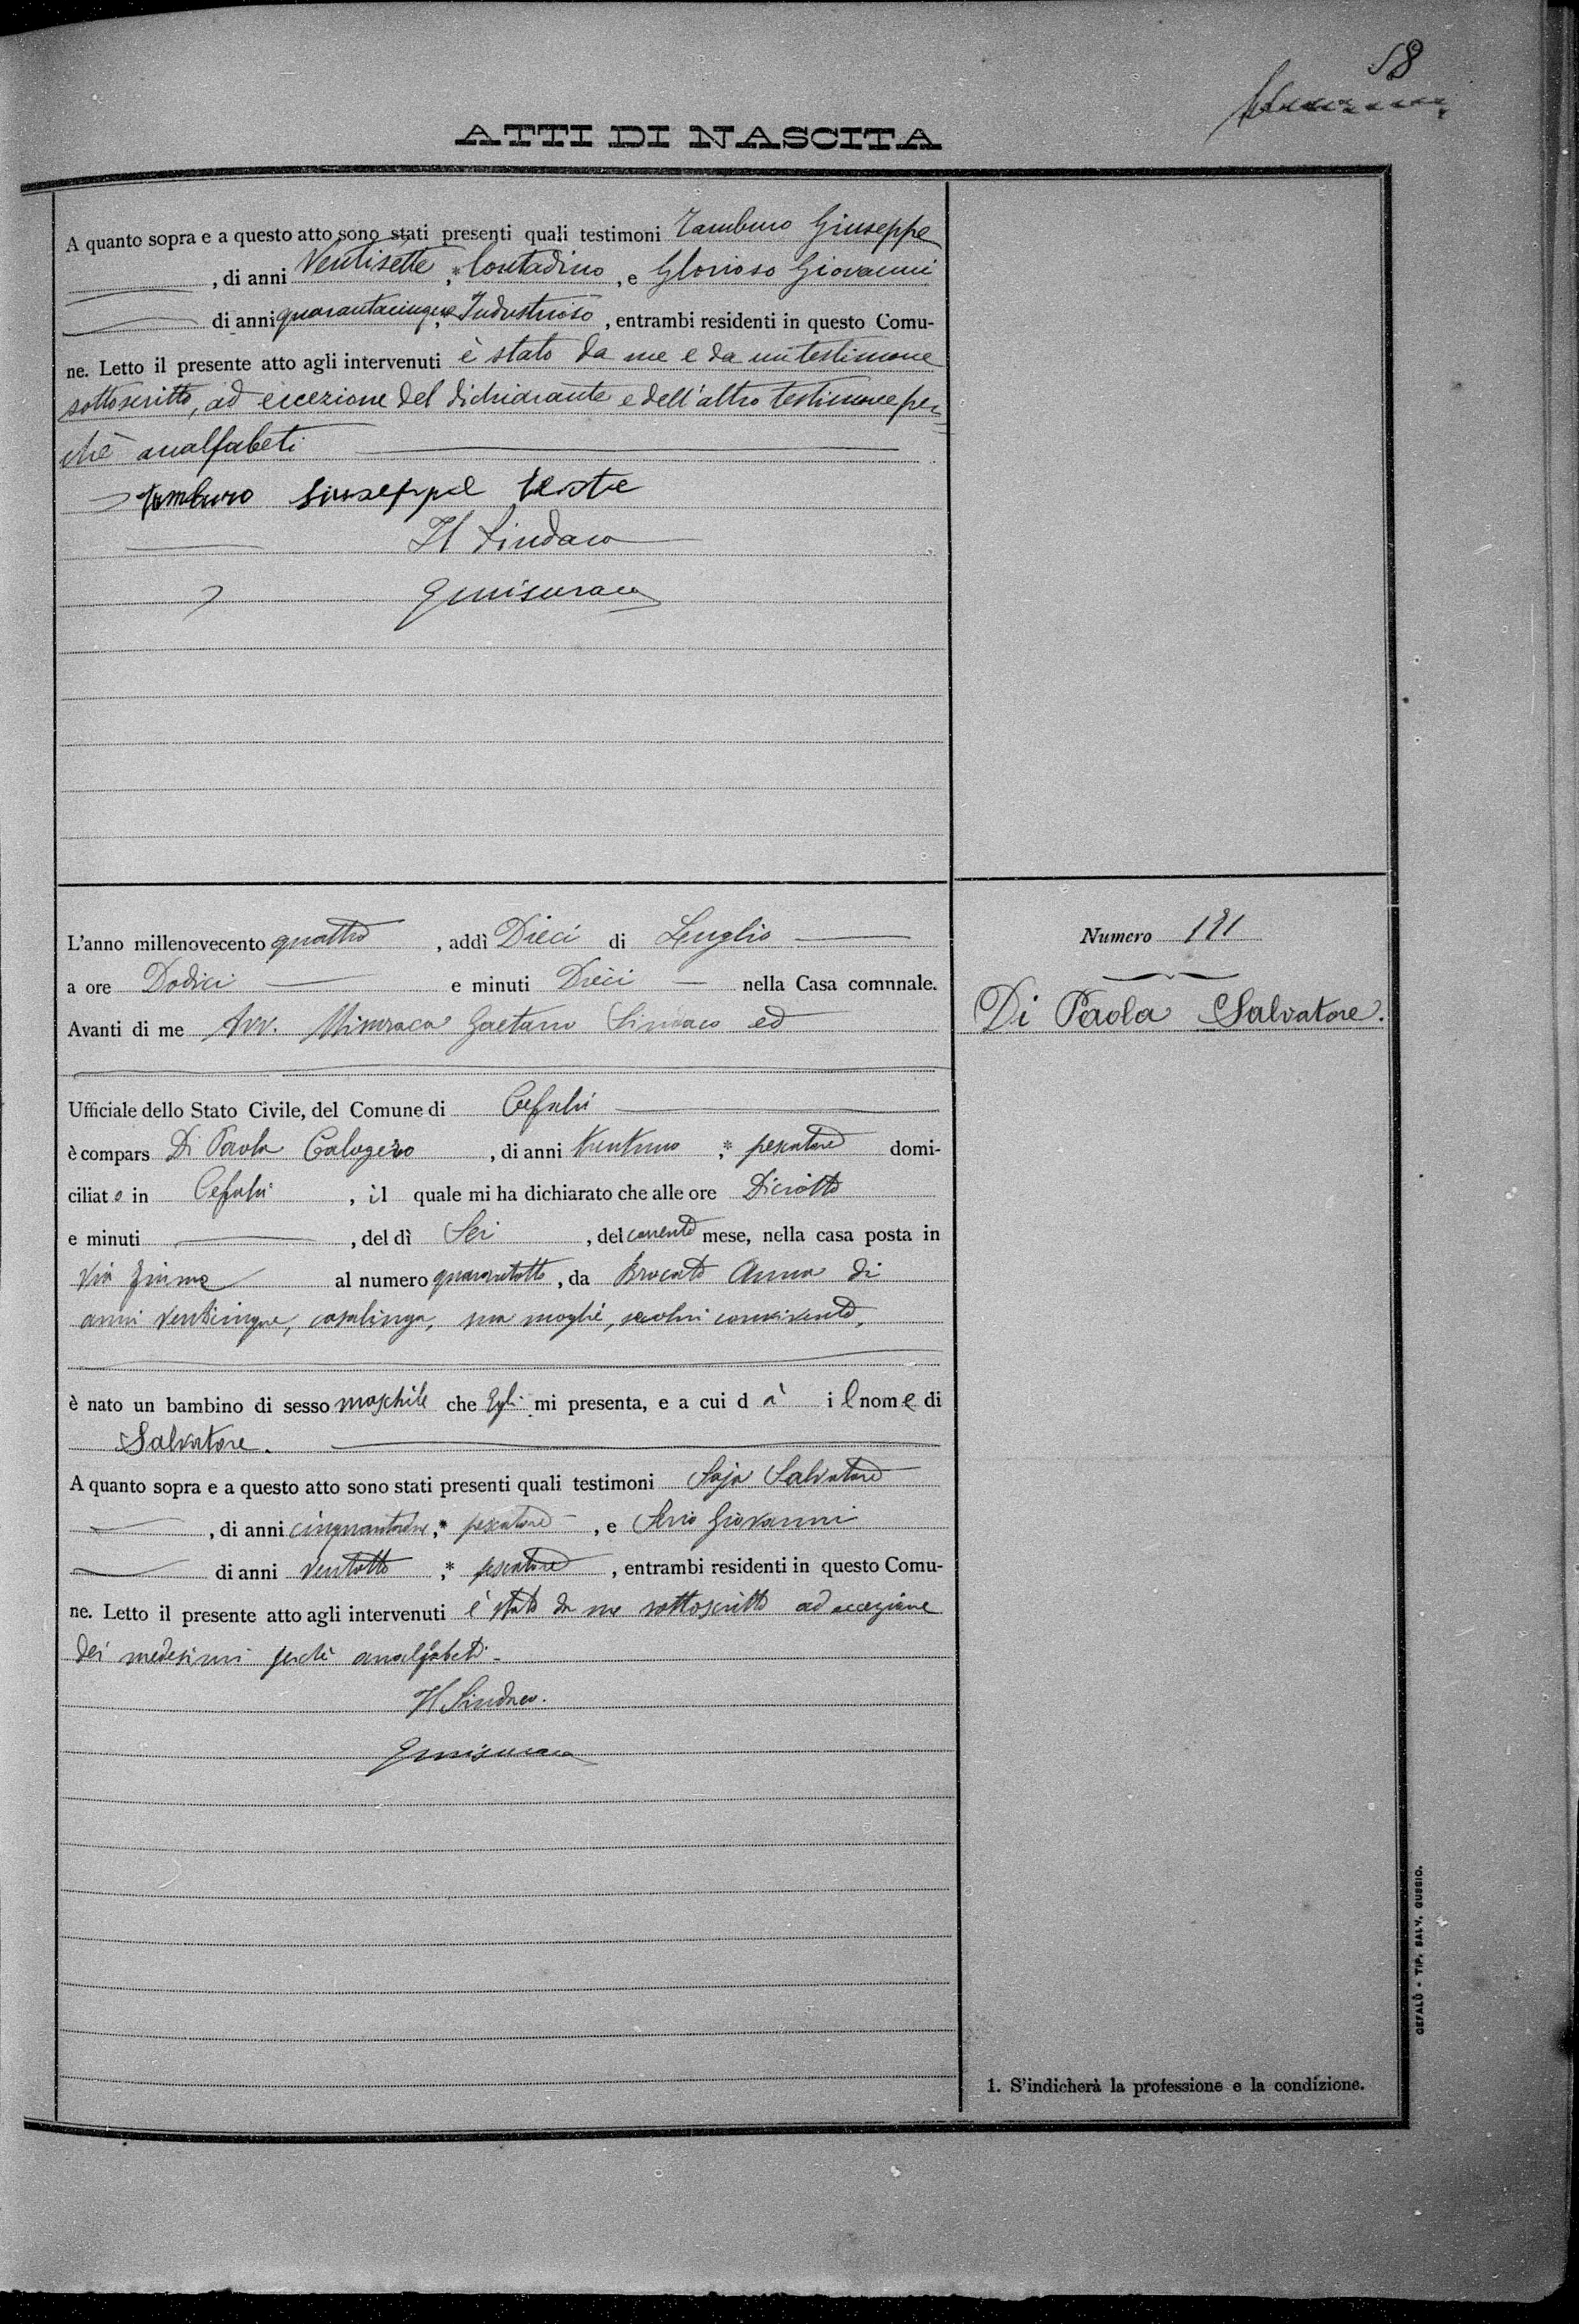 58
ATTI DI NASCITA
A quanto sopra e a questo atto sono stati presenti quali testimoni Tamburo Giuseppe
, di anni Ventisette, * Contadino, e Glorioso Giovanni
di anni quarantacinque Industrioso, entrambi residenti in questo Comu-
ne. Letto il presente atto agli intervenuti è stato da me e da un testimone
sottoscritto, ad eccezione del dichiarante e dell'altro testimone per
chè analfabeti
Tamburo Giuseppe teste
Il Sindaco
GMisuraca
L'anno millenovecento quattro, addì Dieci di Luglio
a ore Dodici e minuti Dieci nella Casa comnnale.
Avanti di me Avv. Misuraca Gaetano Sindaco ed
Ufficiale dello Stato Civile, del Comune di Cefalù
è compars Di Paola Calogero, di anni trentuno, * pescatore domi-
ciliato in Cefalù, il quale mi ha dichiarato che alle ore Diciotto
e minuti , del dì Sei, del corrente mese, nella casa posta in
Via Fiume al numero quarantotto, da Brocato Anna di
anni venticinque, casalinga, sua moglie, secolui convivente,
è nato un bambino di sesso maschile che Egli mi presenta, e a cui dà il nome di
Salvatore.
A quanto sopra e a questo atto sono stati presenti quali testimoni Saja Salvatore
, di anni , * pescatore, e Serio Giovanni
di anni ventotto, * pescatore, entrambi residenti in questo Comu-
ne. Letto il presente atto agli intervenuti è stato da me sottoscritto ad eccezione
dei medesimi perchè analfabeti.
Il Sindaco.
GMisuraca
Numero 191
Di Paola Salvatore.
1. S'indicherà la professione e la condizione.
CEFALÙ - TIP. SALV. GUSSIO.